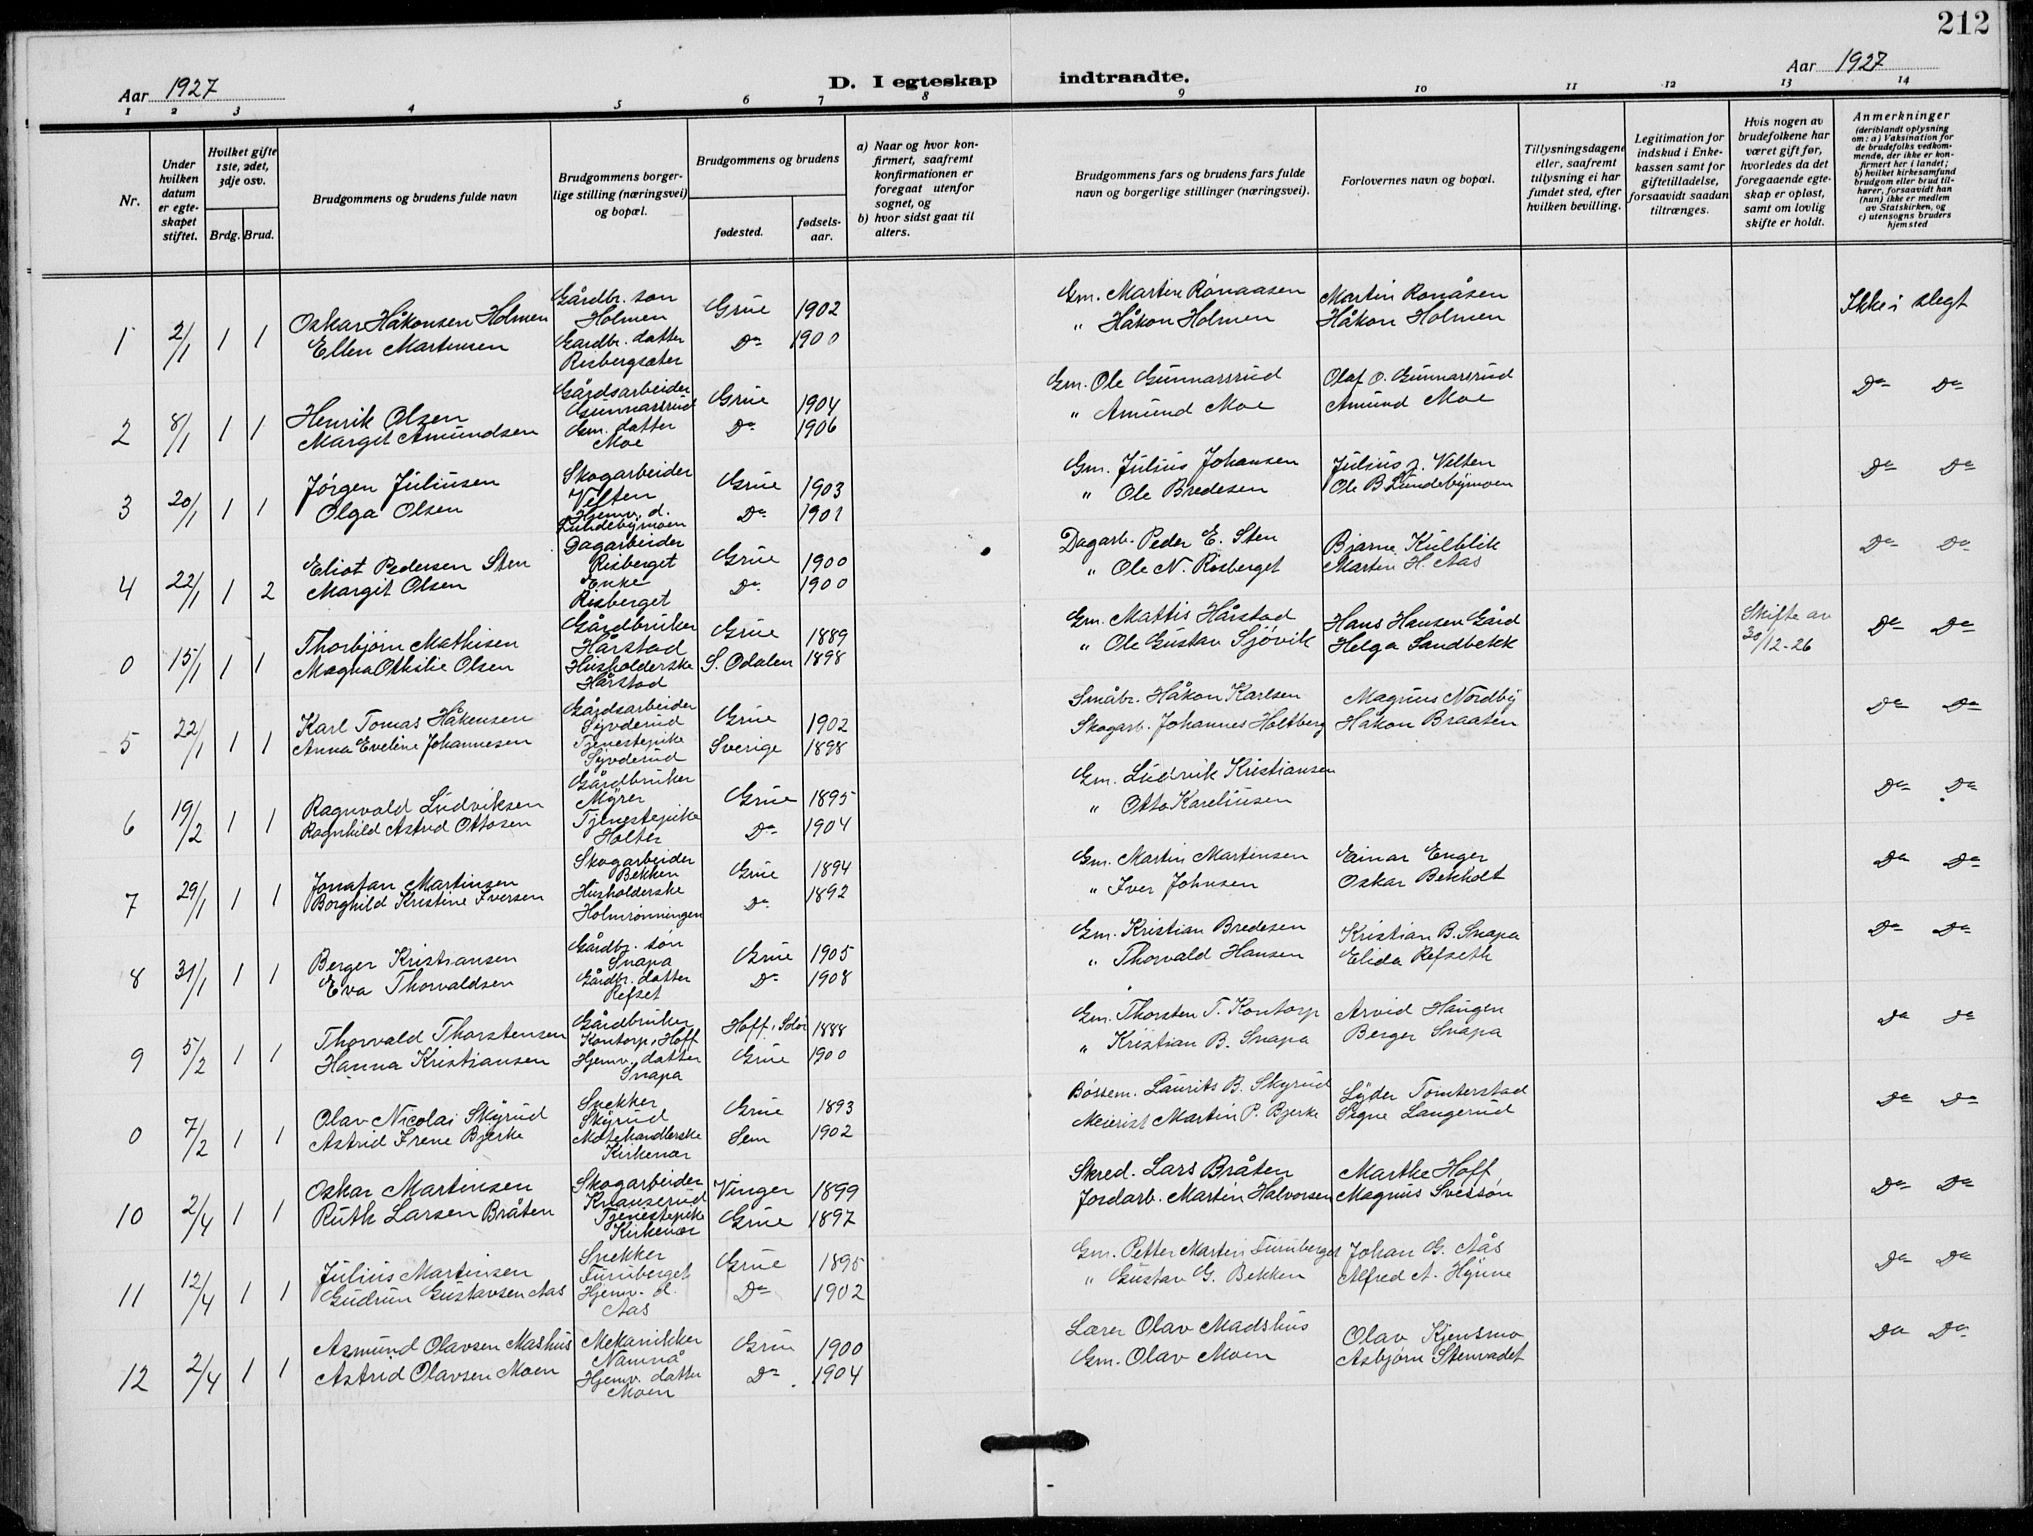 212
Aar 1927
D. I egteskap indtraadte.
Aar 1927
1 2 3 4 5 6 7 8 9 10 11 12 13 14
Nr.
Under hvilken datum er egteskapet stiftet.
Hvilket gifte 1ste, 2det, 3dje osv.
Brdg. Brud.
Brudgommens og brudens fulde navn
Brudgommens borgerlige stilling (næringsvei) og bopæl.
Brudgommens og brudens
fødested.
fødselsaar.
a) Naar og hvor konfirmert, saafremt konfirmationen er foregaat utenfor sognet, og
b) hvor sidst gaat til alters.
Brudgommens fars og brudens fars fulde navn og borgerlige stillinger (næringsvei).
Forlovernes navn og bopæl.
Tillysningsdagene eller, saafremt tillysning ei har fundet sted, efter hvilken bevilling.
Legitimation for indskud i Enkekassen samt for giftetilladelse, forsaavidt saadan tiltrænges.
Hvis nogen av brudefolkene har været gift før, hvorledes da det foregaaende egteskap er opløst, samt om lovlig skifte er holdt.
Anmerkninger
(deriblandt oplysning om: a) Vaksination for de brudefolks vedkommende, der ikke er konfirmert her i landet; b) hvilket kirkesamfund brudgom eller brud tilhører, forsaavidt han (hun) ikke er medlem av Statskirken, og c) utensogns bruders hjemsted
1 2/1 1 1 Oskar Håkonsen Holmen Gårdbr. søn Holmen Grue 1902 Gm. Martin Rønaasen Martin Ronåsen Ikke i slegt
Ellen Martinsen Gardbr. datter Risbergsæter Do 1900 " Håkon Holmen Håkon Holmen
2 8/1 1 1 Henrik Olsen Gårdsarbeider Gunnarsrud Grue 1904 Gm. Ole Gunnarsrud Olaf O. Gunnarsrud Do Do
Margit Amundsen Gm. datter Moe Do 1906 " Amund Moe Amund Moe
3 20/1 1 1 Jørgen Juliusen Skogarbeider Velten Grue 1903 Gm. Julius Johansen Julius J. Velten Do Do
Olga Olsen Hjemv. d. Lundebymoen Do 1901 " Ole Bredesen Ole B Lundebymoen
4 22/1 1 2 Eliot Pedersen Sten Dagarbeider Risberget Grue 1900 Dagarb. Peder E. Sten Bjarne Kulblik Do Do
Margit Olsen Enke Risberget Do 1900 " Ole N. Risberget Martin H. Aas
0 15/1 1 1 Thorbjørn Mathisen Gårdbruker Hårstad Grue 1889 Gm. Mattis Hårstad Hans Hansen Gård Skifte av 30/12-26 Do Do
Magna Othilie Olsen Husholderske Hårstad S. Odalen 1898 " Ole Gustav Sjøvik Helga Sandbekk
5 22/1 1 1 Karl Tomas Håkensen Gårdsarbeider Syvderud Grue 1902 Småbr. Håkon Karlsen Magnus Nordby Do Do
Anna Eveline Johannesen Tjenestepike Syvderud Sverige 1898 Skogarb. Johannes Holtberg Håkon Braaten
6 19/2 1 1 Ragnvald Ludviksen Gårdbruker Myrer Grue 1895 Gm. Ludvik Kristiansen Do Do
Ragnhild Astrid Ottosen Tjenestepike Holter Do 1904 " Otto Kareliusen
7 29/1 1 1 Jonatan Martinsen Skogarbeider Bekken Grue 1894 Gm. Martin Martinsen Einar Enger Do Do
Borghild Kristine Iversen Husholderske Holmrønningen Do 1892 " Iver Johnsen Oskar Bekholt
8 31/1 1 1 Berger Kristiansen Gårdbr. søn Snapa Grue 1905 Gm. Kristian Bredesen Kristian B. Snapa Do Do
Eva Thorvaldsen Gårdbr. datter Refset Do 1908 " Thorvald Hansen Elida Refseth
9 5/2 1 1 Thorvald Thorstensen Gårdbruker Kontorp, Hoff Hoff, Solør 1888 Gm. Thorsten T. Kontorp Arvid Haugen Do Do
Hanna Kristiansen Hjemv. datter Snapa Grue 1900 " Kristian B. Snapa Berger Snapa
0 7/2 1 1 Olav Nicolai Skyrud Snekker Skyrud Grue 1893 Bøssem. Laurits B. Skyrud Lyder Tomterstad Do Do
Astrid Irene Bjerke Motehandlerske Kirkenær Sem 1902 Meierist Martin P. Bjerke Signe Langerud
10 2/4 1 1 Oskar Martinsen Skogarbeider Knauserud Vinger 1899 Skred. Lars Bråten Marthe Hoff Do Do
Ruth Larsen Bråten Tjenestepike Kirkenær Grue 1897 Jordarb. Martin Halvorsen Magnus Svessøn
11 12/4 1 1 Julius Martinsen Snekker Furuberget Grue 1895 Gm. Petter Martin Furuberget Johan G. Aås Do Do
Gudrun Gustavsen Aas Hjemv. d. Aas Do 1902 " Gustav G. Bekken Alfred A. Hynne
12 2/4 1 1 Asmund Olavsen Mashus Mekanikker Namnå Grue 1900 Lærer Olav Madshus Olav Kjensmo Do Do
Astrid Olavsen Moen Hjemv. datter Moen Do 1904 Gm. Olav Moen Asbjørn Stenvadet